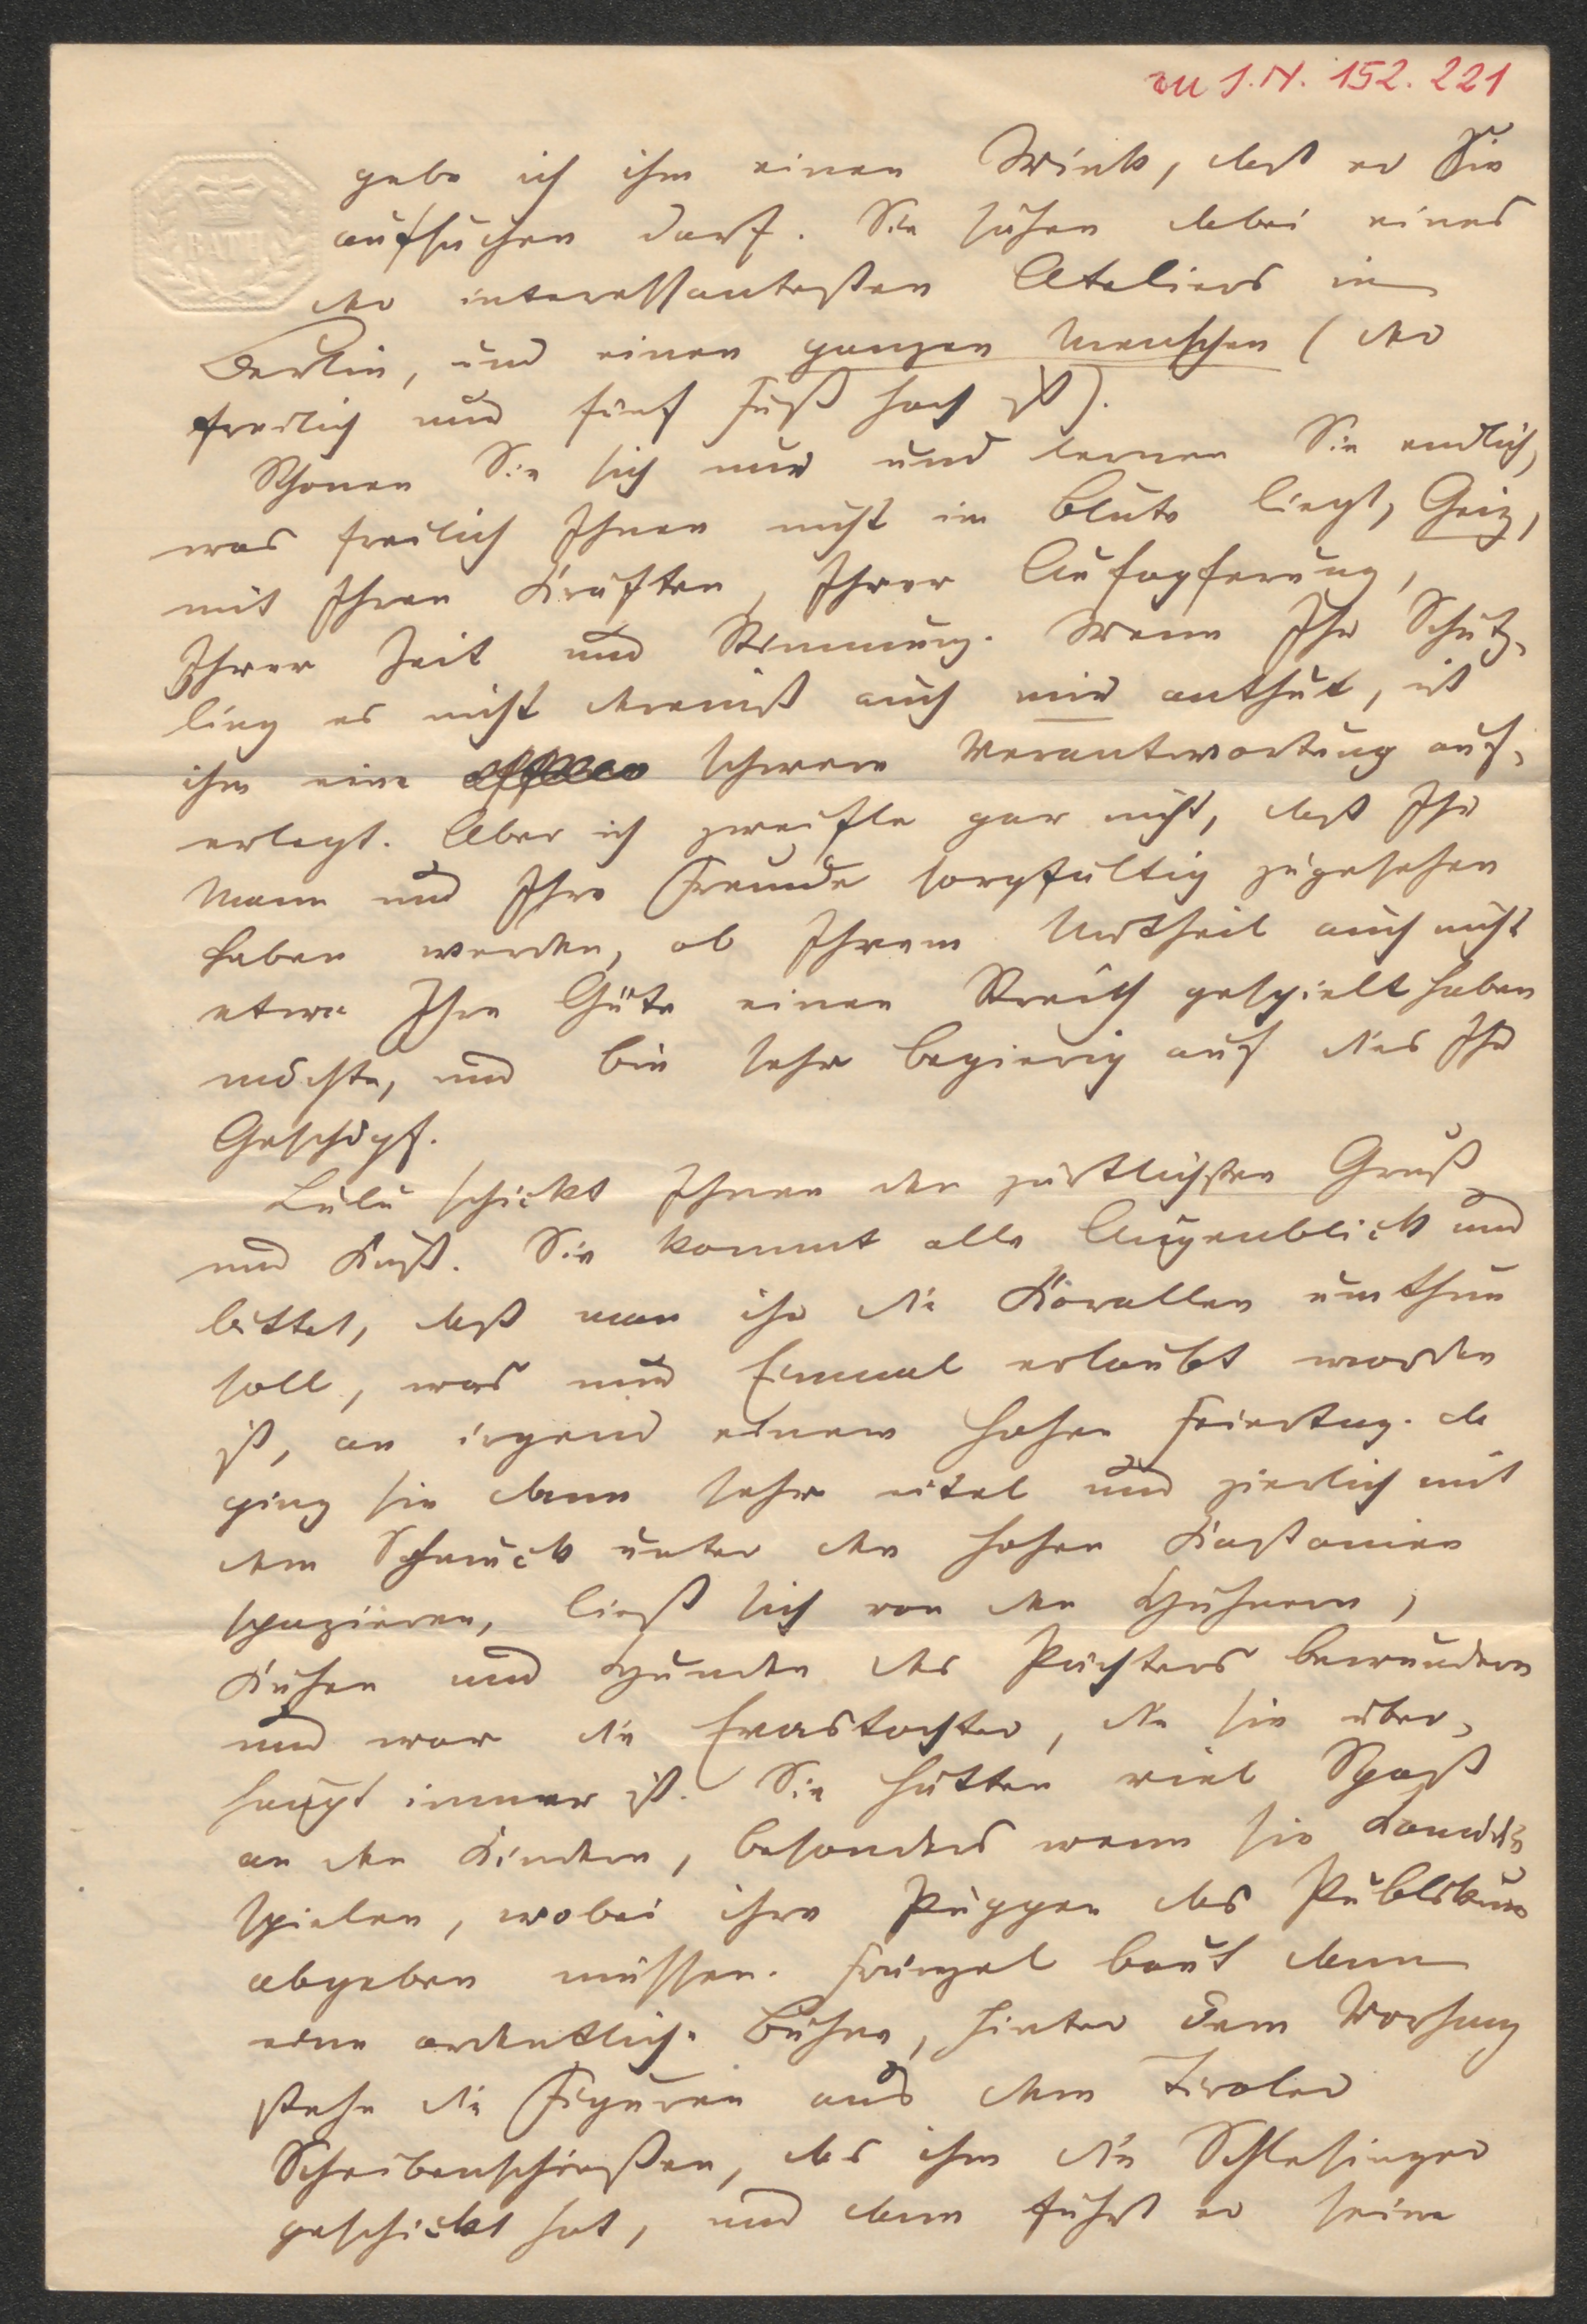 zu I.N. 152.221
BATH
gebe ich ihm einen Wink, daß er Sie
aufsuchen darf. Sie sähen dabei eines
der interessantesten Ateliers in
Berlin, und einen ganzen Menschen (der
freilich nur fünf Fuß hoch ist).
Schonen Sie sich nur und lernen Sie endlich,
was freilich Ihnen nicht im Blute liegt, Geiz,
mit Ihren Kräften, Ihrer Aufopferung,
Ihrer Zeit und Stimmung. Wenn Ihr Schütz-
ling es nicht dereinst auch mir anthut, ist
ihm eine schwere Verantwortung auf-
erlegt. Aber ich zweifle gar nicht, daß Ihr
Mann und Ihre Freunde sorgfältig zugesehen
haben werden, ob Ihrem Urtheil auch nicht
etwa Ihre Güte einen Streich gespielt haben
möchte, und bin sehr begierig auf dies Ihr
Geschöpf.
Lulu schickt Ihnen den zärtlichsten Gruß
und Kuß. Sie kommt alle Augenblick und
bittet, daß man ihr die Korallen umthun
soll, was nur Einmal erlaubt worden
ist, an irgend einem hohen Feiertag. da
ging sie dann sehr eitel und zierlich mit
dem Schmuck unter den hohen Kastanien
spazieren, ließ sich von den Hühnern,
Kühen und Hunden des Pächters bewundern
und war die Evastochter, die sie über-
haupt immer ist. Sie hätten viel Spaß
an den Kindern, besonders wenn sie Komödie
spielen, wobei ihre Puppen das Publikum
abgeben müssen. Franzel baut dann
eine ordentliche Bühne, hinter dem Vorhang
stehn die Figuren aus dem Tiroler
Scheibenschießen, das ihm die Schlesinger
geschickt hat, und dann führt er seine